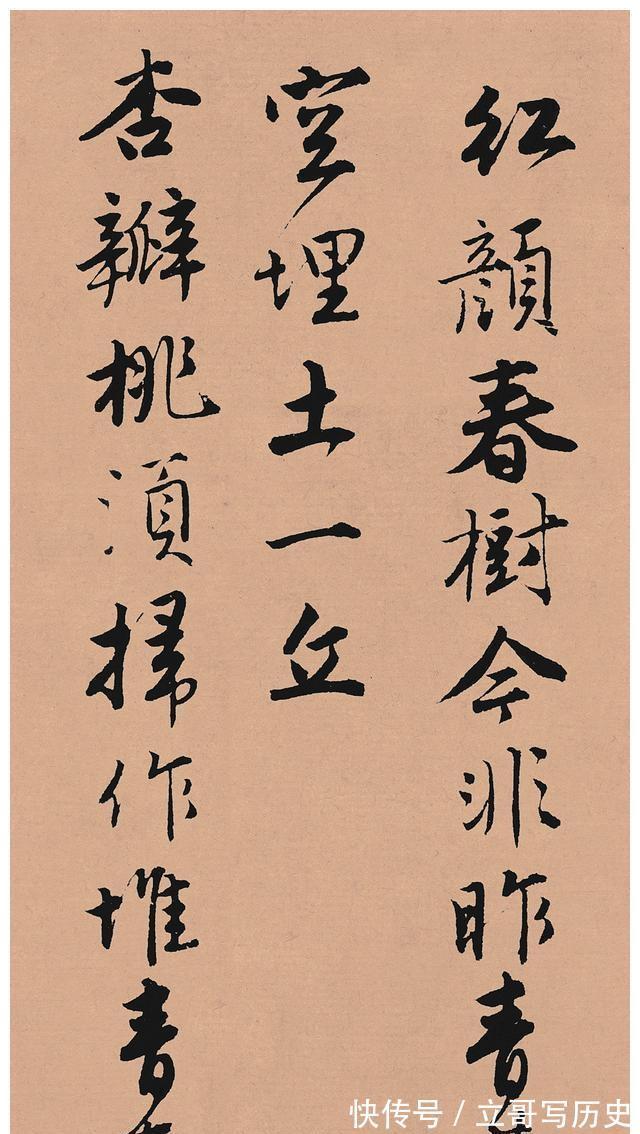 紅顔春樹今非昨青
空埋土一丘
杏瓣桃須掃作堆青
快传号 / 立哥写历史